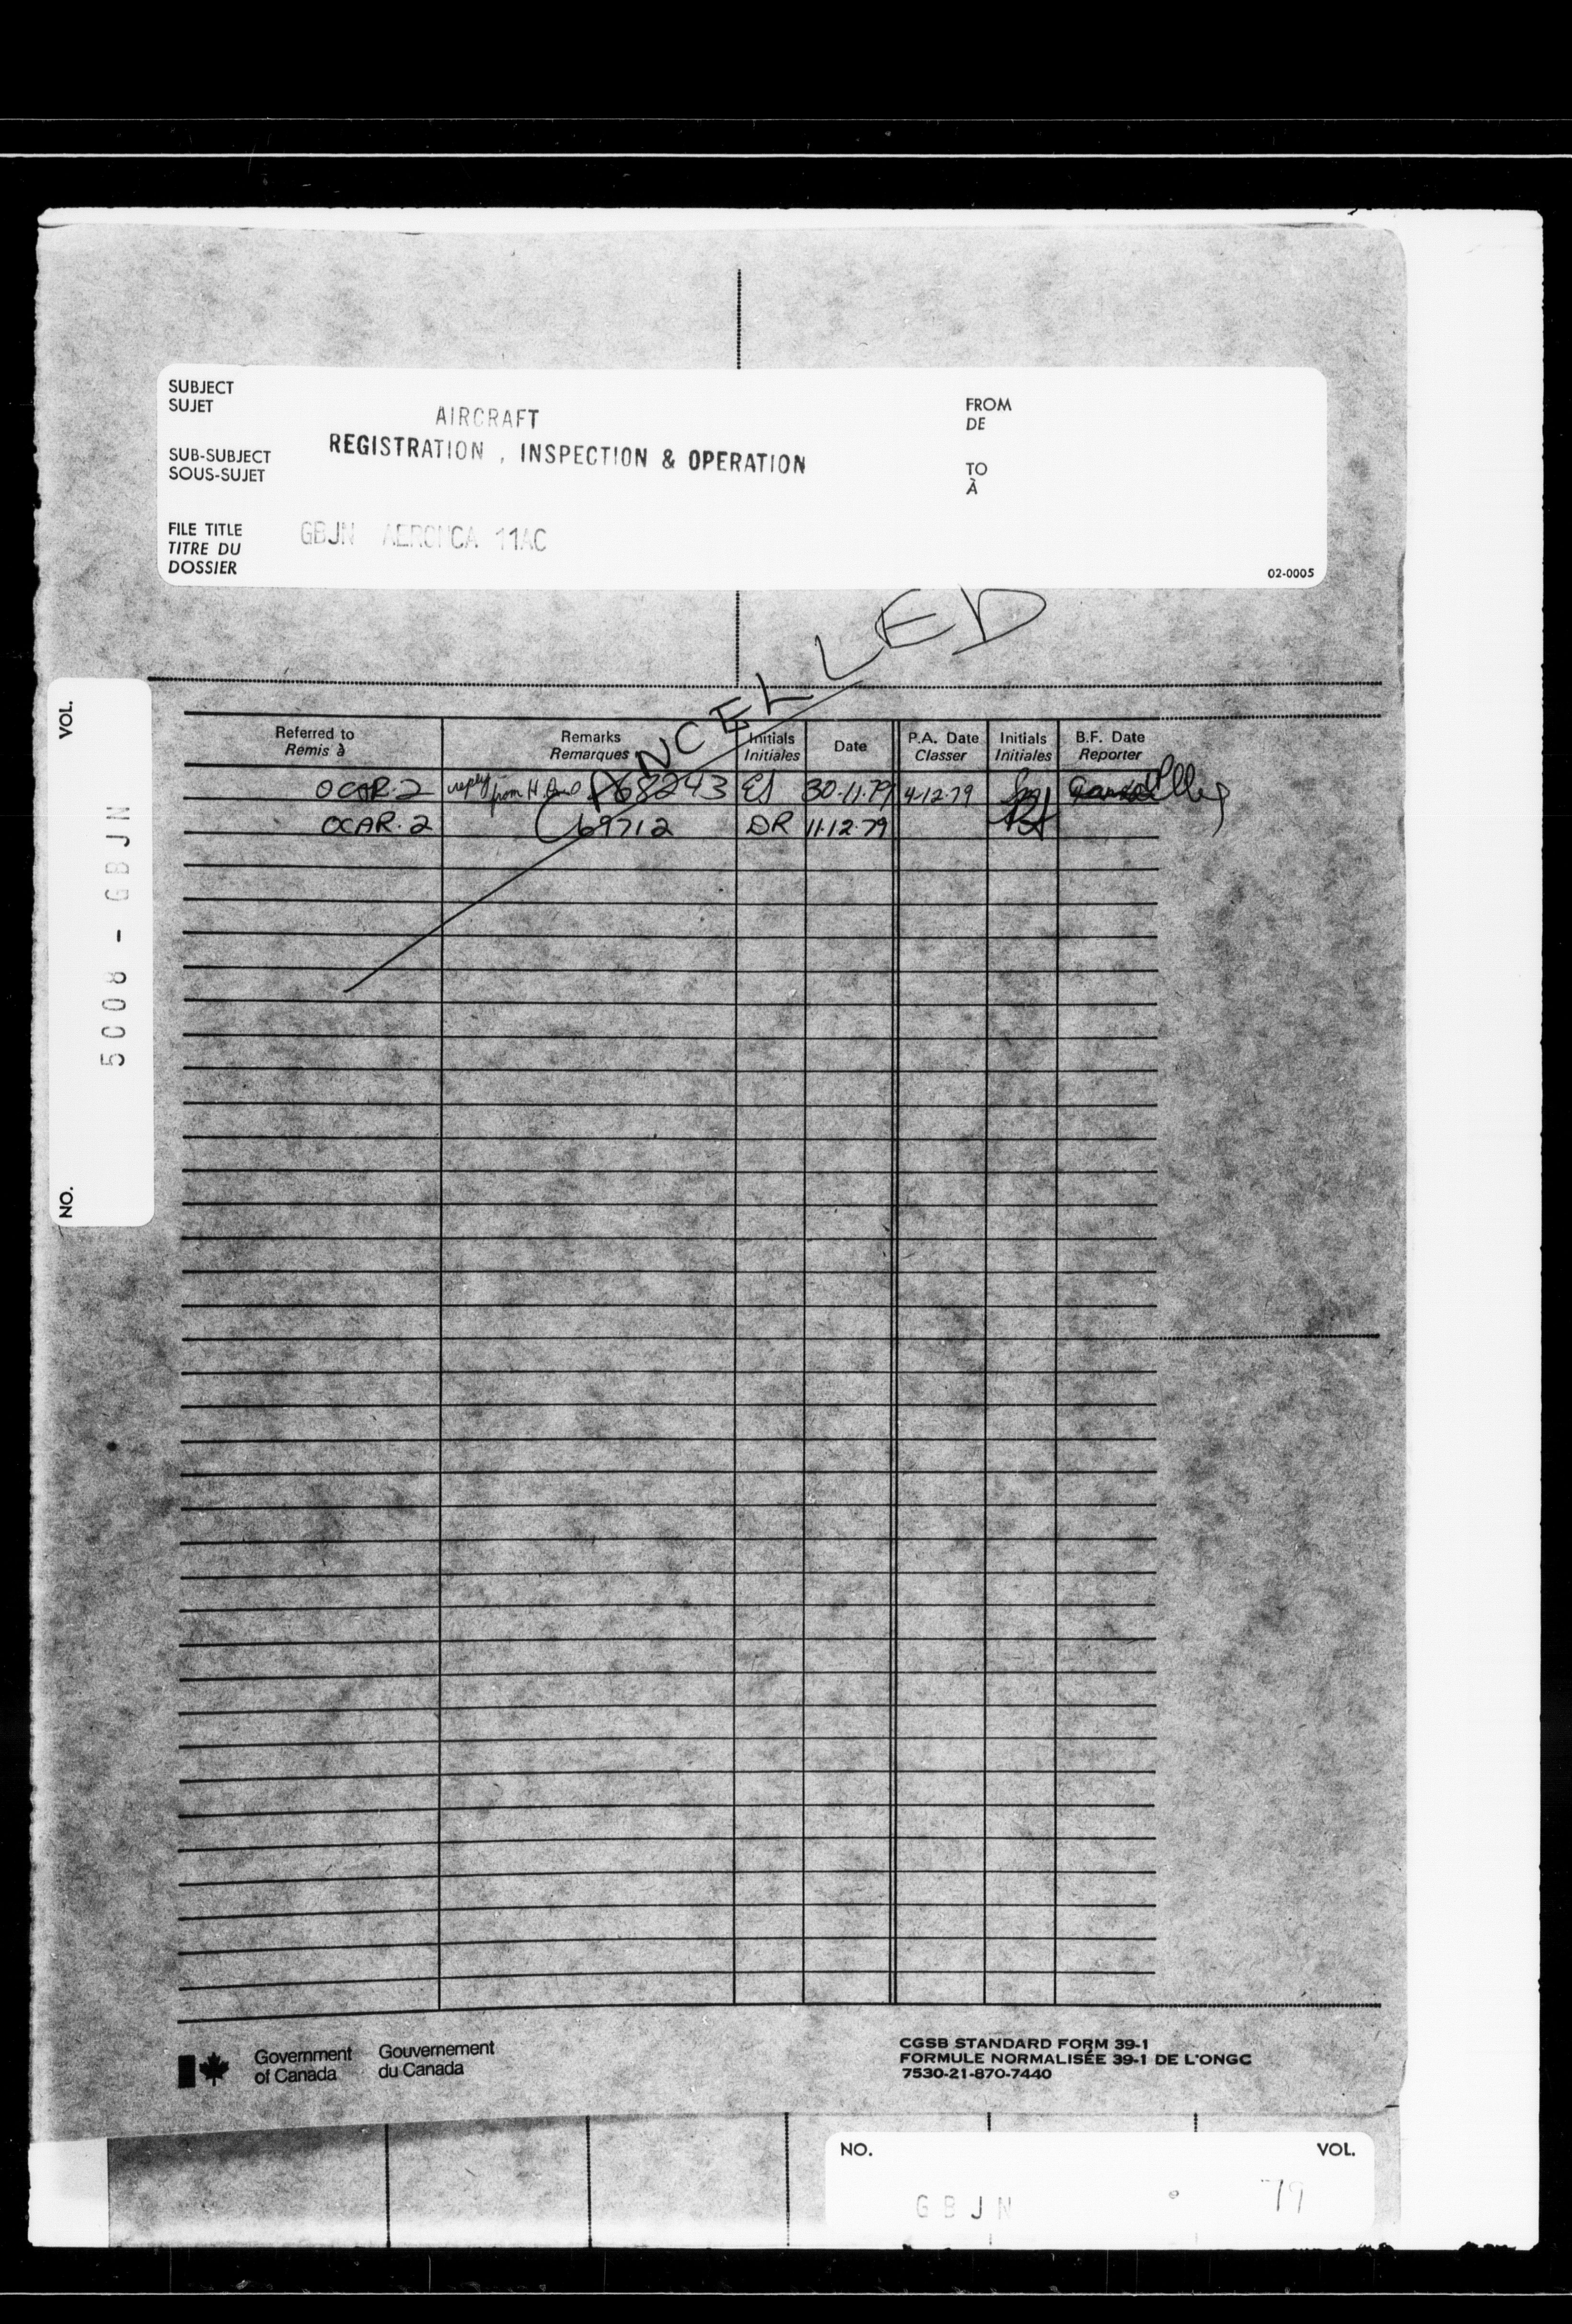 SUBJECT
SUJET
AIRCRAFT
FROM
DE
SUB-SUBJECT
SOUS-SUJET
REGISTRATION , INSPECTION & OPERATION
TO
À
FILE TITLE
TITRE DU
DOSSIER
GBJN AERONCA 11AC
02-0005
CANCELLED
VOL.
5008 - GBJN
NO.
Referred to Remarks Initials Date P.A. Date Initials B.F. Date
Remis à Remarques Initiales Classer Initiales Reporter
OCAR-2 reply from H. 68243 ES 30.11.79 4.12.79
OCAR.2 69712 DR 11.12.79
Government
of Canada
Gouvernement
du Canada
CGSB STANDARD FORM 39-1
FORMULE NORMALISÉE 39-1 DE L'ONGC
7530-21-870-7440
NO. VOL.
GBJN 79